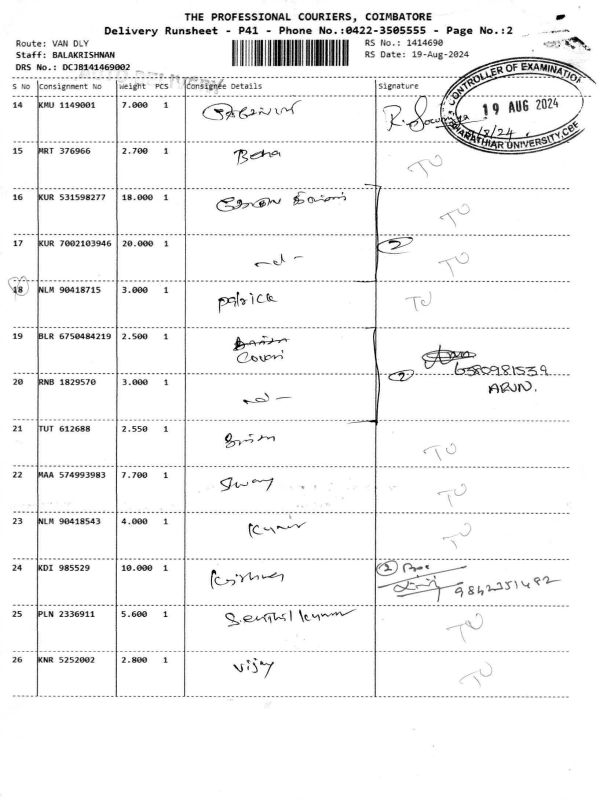 THE PROFESSIONAL COURIERS, COIMBATORE
Delivery Runsheet - P41 - Phone No.:0422-3505555 - Page No.:2
Route: VAN DLY
RS No.: 1414690
Staff: BALAKRISHNAN
RS Date: 19-Aug-2024
DRS No.: DCJB141469002
S No Consignment No Weight PCS Consignee Details Signature
CONTROLLER OF EXAMINATION
19 AUG 2024
BHARATHIAR UNIVERSITY, CBE
14 KMU 1149001 7.000 1
15 MRT 376966 2.700 1 TU
16 KUR 531598277 18.000 1 TU
17 KUR 7002103946 20.000 1 2 TU
18 NLM 90418715 3.000 1 Patrick TU
19 BLR 6750484219 2.500 1
6380981539
20 RNB 1829570 3.000 1 2 ARUN.
21 TUT 612688 2.550 1 TU
22 MAA 574993983 7.700 1 TU
23 NLM 90418543 4.000 1 TU
24 KDI 985529 10.000 1 Krishna 2
9842351482
25 PLN 2336911 5.600 1 Senthil kumar TU
26 KNR 5252002 2.800 1 Vijay TU